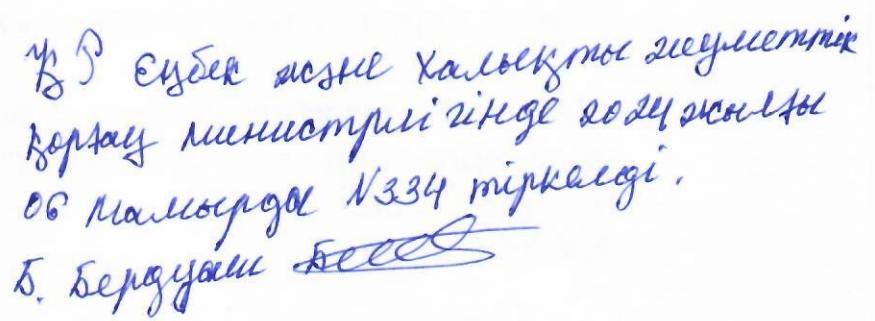 ҚР Еңбек және халықты әлеуметтік
қорғау министрлігінде 2024 жылғы
06 мамырда №334 тіркелді.
Б.